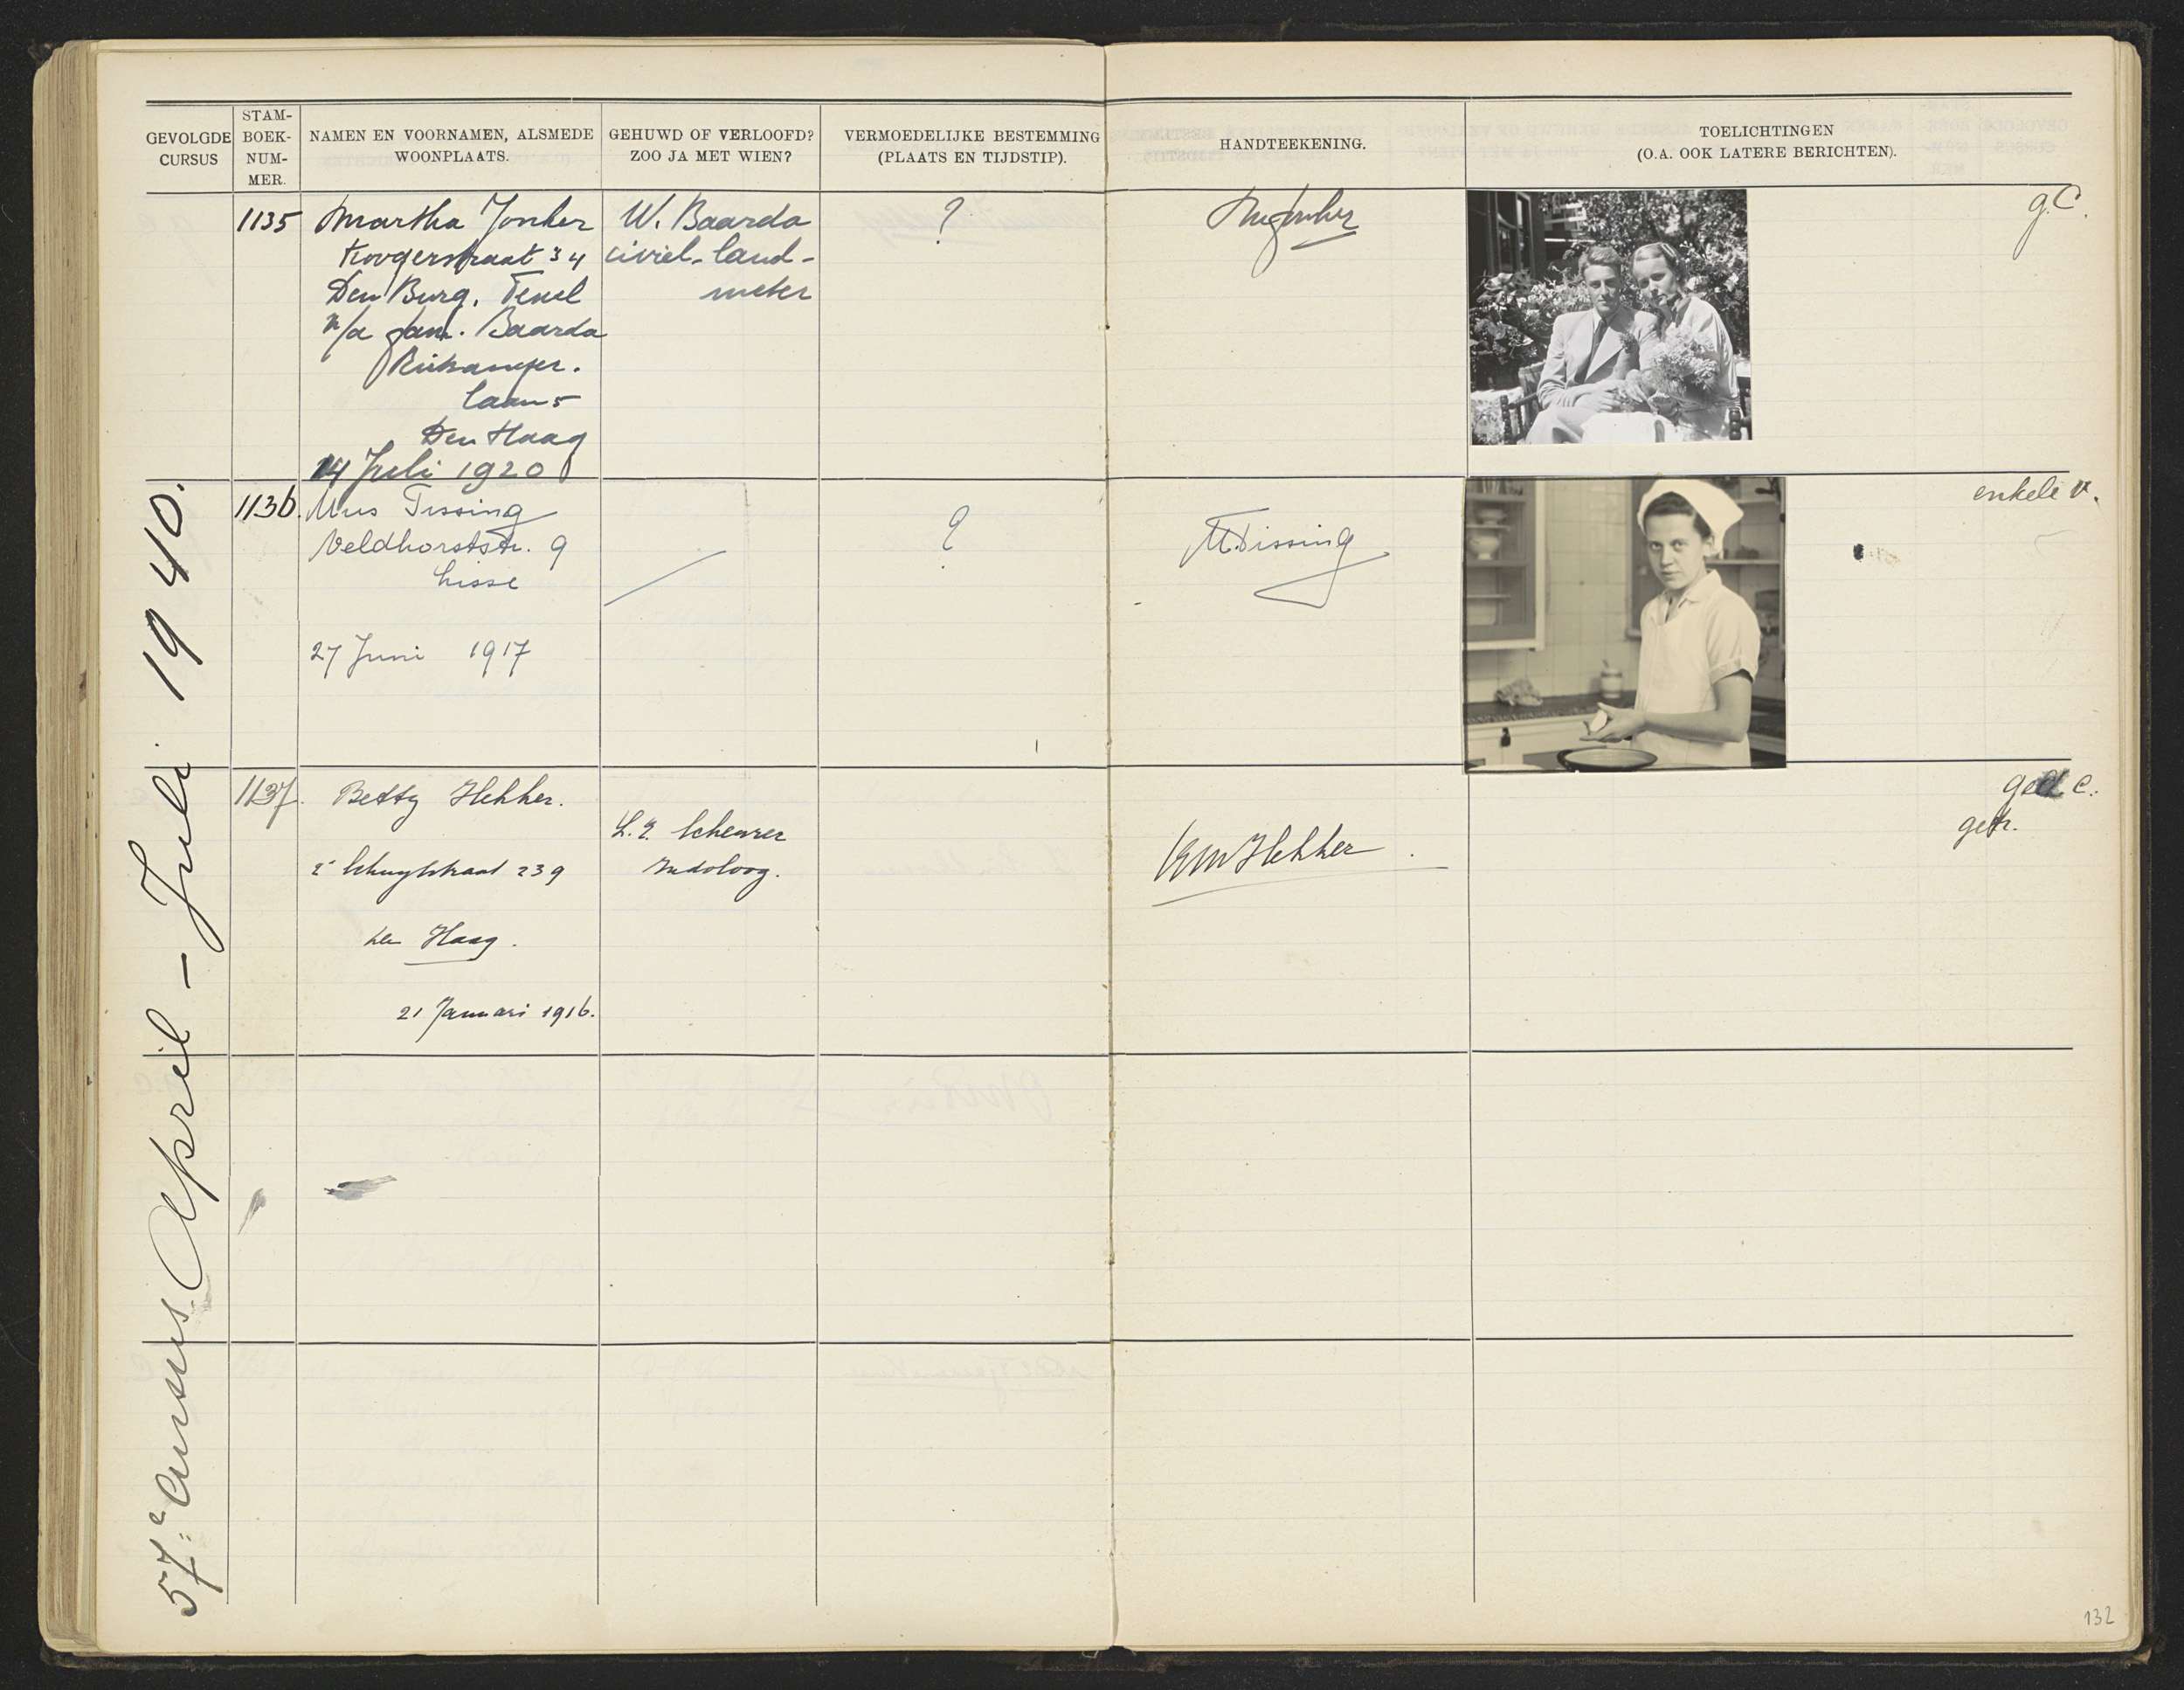 GEVOLGDE
CURSUS
STAM-
BOEK-
NUM-
MER.
NAMEN EN VOORNAMEN, ALSMEDE
WOONPLAATS.
GEHUWD OF VERLOOFD?
ZOO JA MET WIEN?
VERMOEDELIJKE BESTEMMING
(PLAATS EN TIJDSTIP).
HANDTEEKENING.
TOELICHTINGEN
(O.A. OOK LATERE BERICHTEN).
57e Cursus April - Juli 1940.
1135
Martha Jonker
Koogerstraat 34
Den Burg, Texel
p/a fam. Baarda
laan 5
Den Haag
14 Juli 1920
W. Baarda
civiel-land-
meter
?
g.C.
1136.
Mies Tissing
Veldhorststr. 9
Lisse
27 Juni 1917
?
M.Tissing
enkele v.
1137.
Betty Hekker.
2e Schuytstraat 239
den Haag.
21 Januari 1916.
L. E. Scheurer
Indoloog.
Hekker
getr.
132